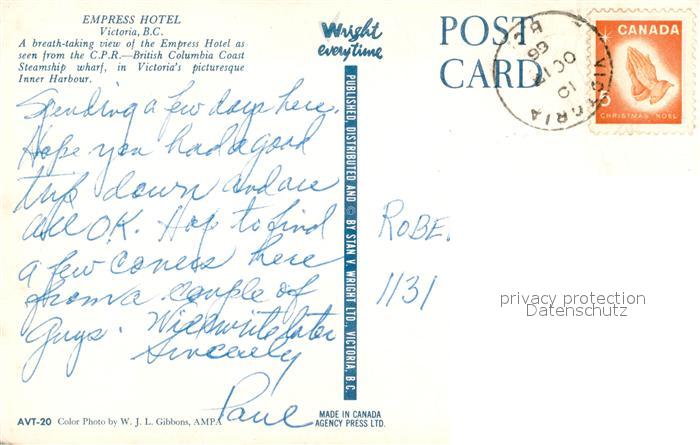 EMPRESS HOTEL
Victoria, B.C.
A breath-taking view of the Empress Hotel as
seen from the C.P.R.—British Columbia Coast
Steamship wharf, in Victoria's picturesque
Inner Harbour.
Spending a few days here.
Hope you had a good
trip down and are
all O.K. Hope to find
a few covers here
from a couple of
Guys. Will write later
Sincerely
Paul
AVT-20 Color Photo by W. J. L. Gibbons, AMPA
Wright
everytime
PUBLISHED, DISTRIBUTED AND © BY STAN V. WRIGHT LTD., VICTORIA, B.C.
MADE IN CANADA
AGENCY PRESS LTD.
POST
CARD
VICTORIA
10
OC 12
66
B.C.
CANADA
5
CHRISTMAS NOËL
ROBE
1131
privacy protection
Datenschutz